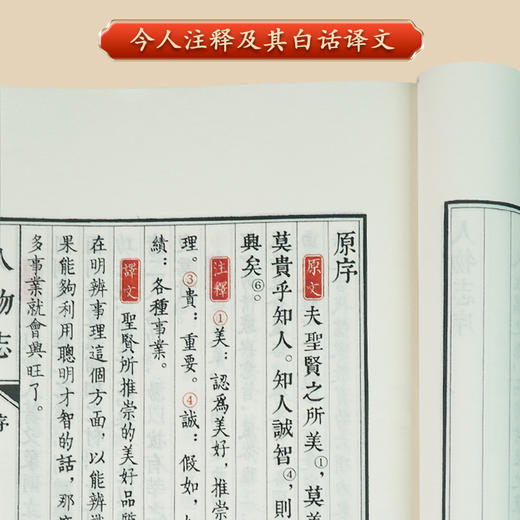 今人注释及其白话译文
原序
原文 夫聖賢之所美①，莫美
莫貴乎知人。知人誠智④，則
興矣⑥。
注釋 ①美：認爲美好，推崇
理。③貴：重要。④誠：假如，
績：各種事業。
譯文 聖賢所推崇的美好品
在明辨事理這個方面，以能辨
果能夠利用聰明才智的話，那
多事業就會興旺了。
人物志
序